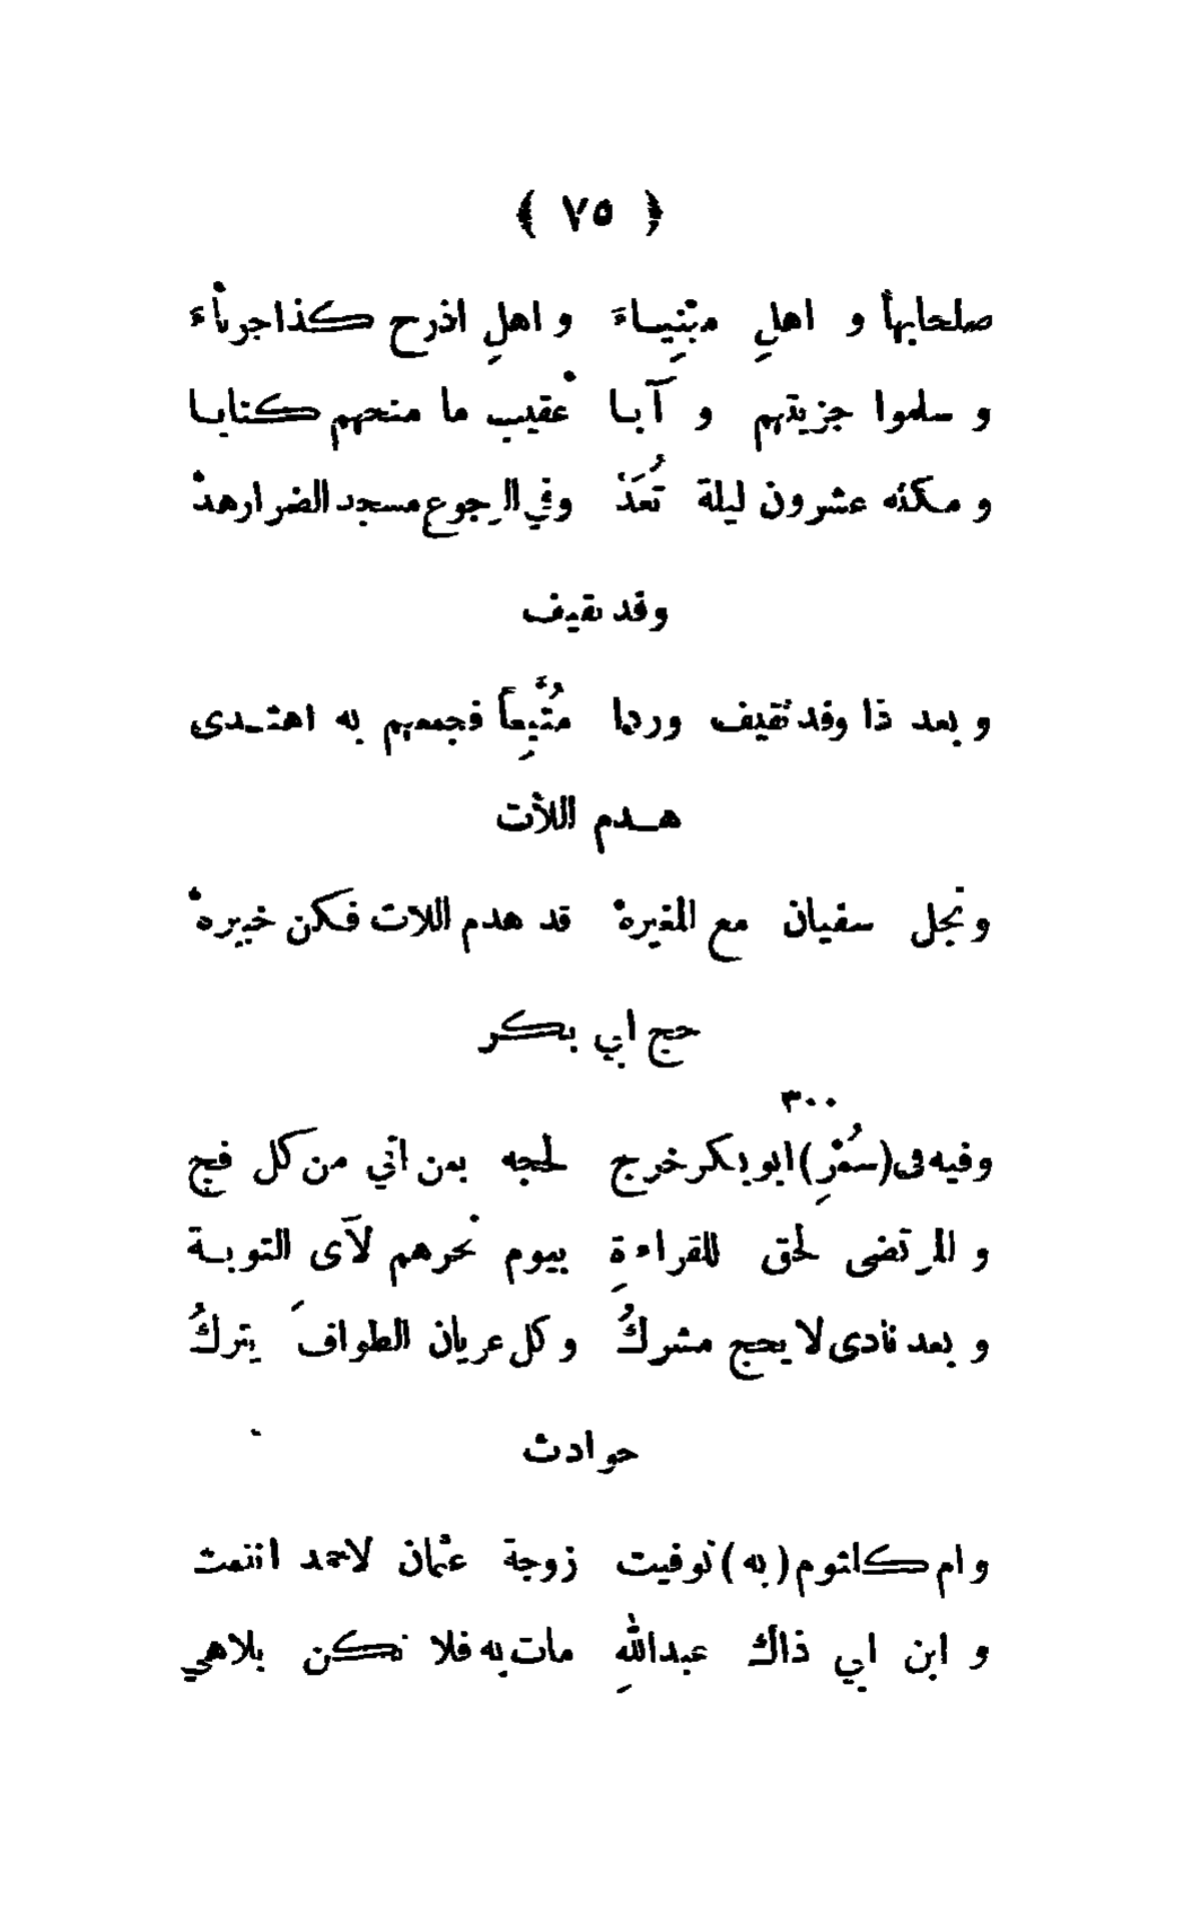 ﴿ ٧٥ ﴾
صلحابها و اهلِ مبْنِيِاءَ و اهلِ اذرح كذا جرباْءَ
و سلموا جزيتهم و آبا عْقيب ما منحهم كتابا
و مكثه عشرون ليلة تُعَدْ وفي الرجوع مسجد الضرار هدْ
وفد ثقيف
و بعد ذا وفد ثقيف وردا مُتَّبِعاً فجمعهم به اهتدى
هدم اللأت
ونجل سفيان مع المغيرهْ قد هدم اللات فكن خبيرهْ
حج ابي بكر
٣٠٠
وفيه فى (سُمْرِ) ابو بكر خرج لحجه بمن اتي من كل فج
و المرتضى لحق للقراءةِ بيوم نحرهم لآى التوبة
و بعد نادى لا يحج مشركُ وكل عريان الطوافَ يتركُ
حوادث
وام كلثوم (به) توفيت زوجة عثمان لاحمد انتمت
و ابن ابي ذاك عبداللهِ مات به فلا تكن بلاهي